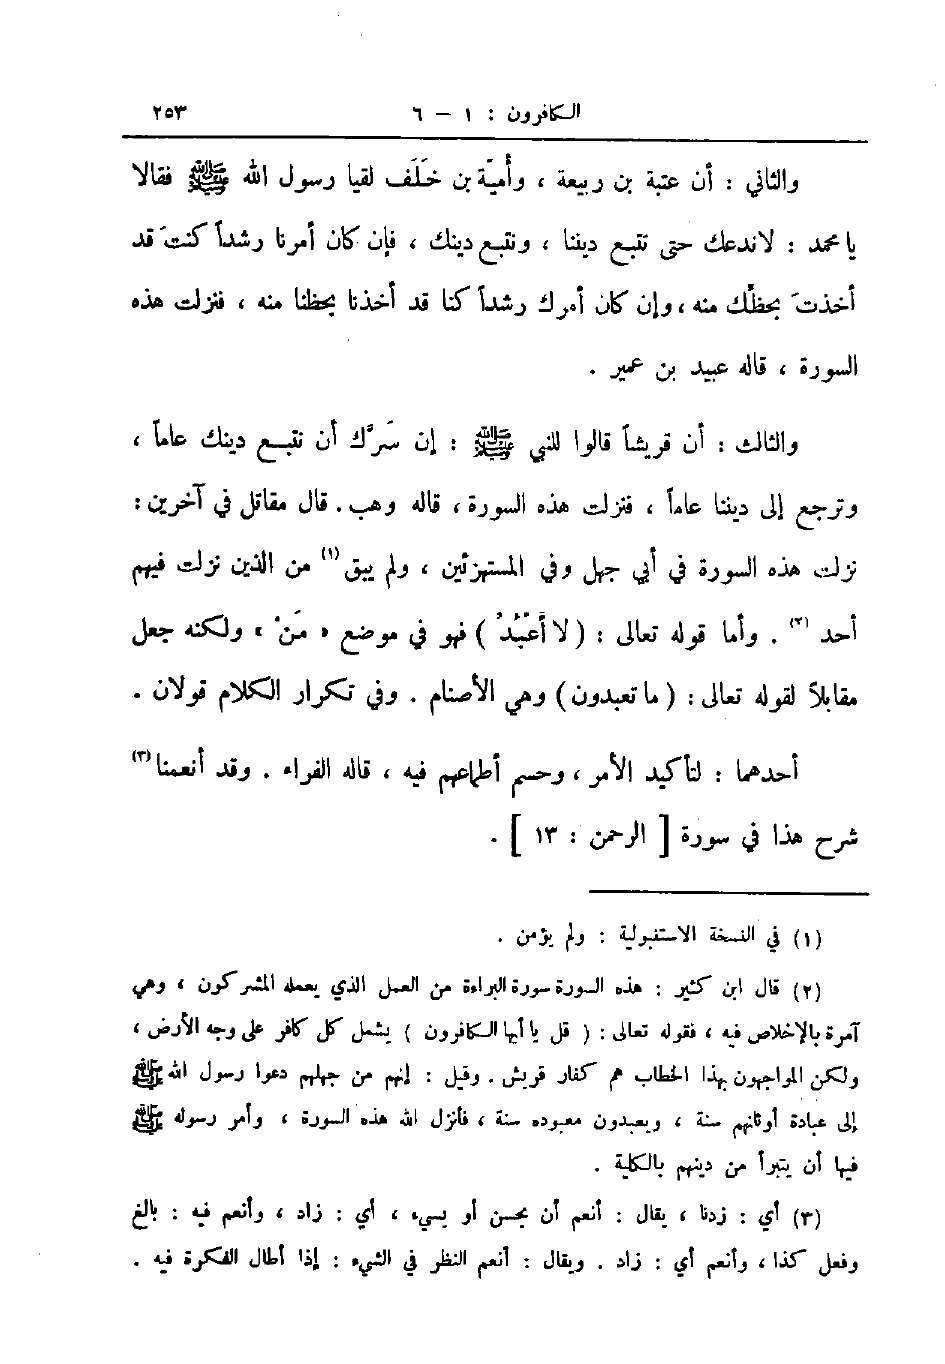 الكافرون : ١ – ٦ ٢٥٣
والثاني : أن عتبة بن ربيعة ، وأميّة بن خَلَف لقيا رسول الله ﷺ فقالا
يا محمد : لاندعك حتى تتبع ديننا ، ونتبع دينك ، فإن كان أمرنا رشداً كنتَ قد
أخذتَ بحظِّك منه ، وإن كان أمرك رشداً كنا قد أخذنا بحظنا منه ، فنزلت هذه
السورة ، قاله عبيد بن عمير .
والثالث : أن قريشاً قالوا للنبي ﷺ : إن سَرَّك أن نتبع دينك عاماً ،
وترجع إلى ديننا عاماً ، فنزلت هذه السورة ، قاله وهب . قال مقاتل في آخرين :
نزلت هذه السورة في أبي جهل وفي المستهزئين ، ولم يبق (١) من الذين نزلت فيهم
أحد (٢) . وأما قوله تعالى : ( لا أَعْبُدُ ) فهو في موضع « مَنْ » ولكنه جعل
مقابلاً لقوله تعالى : ( ما تعبدون ) وهي الأصنام . وفي تكرار الكلام قولان .
أحدهما : لتأكيد الأمر ، وحسم أطماعهم فيه ، قاله الفراء . وقد أنعمنا (٣)
شرح هذا في سورة [ الرحمن : ١٣ ] .
(١) في النسخة الاستنبولية : ولم يؤمن .
(٢) قال ابن كثير : هذه السورة سورة البراءة من العمل الذي يعمله المشركون ، وهي
آمرة بالإخلاص فيه ، فقوله تعالى : ( قل يا أيها الكافرون ) يشمل كل كافر على وجه الأرض ،
ولكن المواجهون بهذا الخطاب هم كفار قريش . وقيل : إنهم من جهلهم دعوا رسول الله ﷺ
إلى عبادة أوثانهم سنة ، ويعبدون معبوده سنة ، فأنزل الله هذه السورة ، وأمر رسوله ﷺ
فيها أن يتبرأ من دينهم بالكلية .
(٣) أي : زدنا ، يقال : أنعم أن يحسن أو يسيء ، أي : زاد ، وأنعم فيه : بالغ
وفعل كذا ، وأنعم أي : زاد . ويقال : أنعم النظر في الشيء : إذا أطال الفكرة فيه .